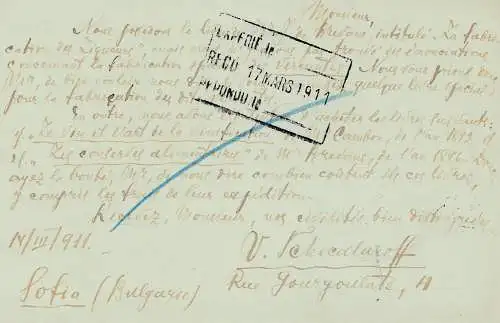 Monsieur,
Nous possédons le livre de Mr de Brevans, intitulé "La fabri-
cation des Liqueurs", mais nous n'y avons pas trouvé des
concernant la fabrication Nous vous prions
Mr, de bien vouloir nous quelque livre spécial
pour la fabrication des dits
En outre, nous avons acheter les livres suivants:
1/. "Le Vin et l'art de la vinification" Cambon, de l'an 1892 et
2/. "Les conserves alimentaires" de Mr Brevans, de l'an 1896.
ayez la bonté, Mr, de nous dire combien coûtent ces livres,
y compris les frais de leur expédition.
Recevez, Monsieur, nos civilités bien distinguées.
14/III/911.
V.
Sofia (Bulgarie)
Rue Gourgouliate, 11
EXPEDIÉ le
REÇU 17 MARS 1911
REPONDU le